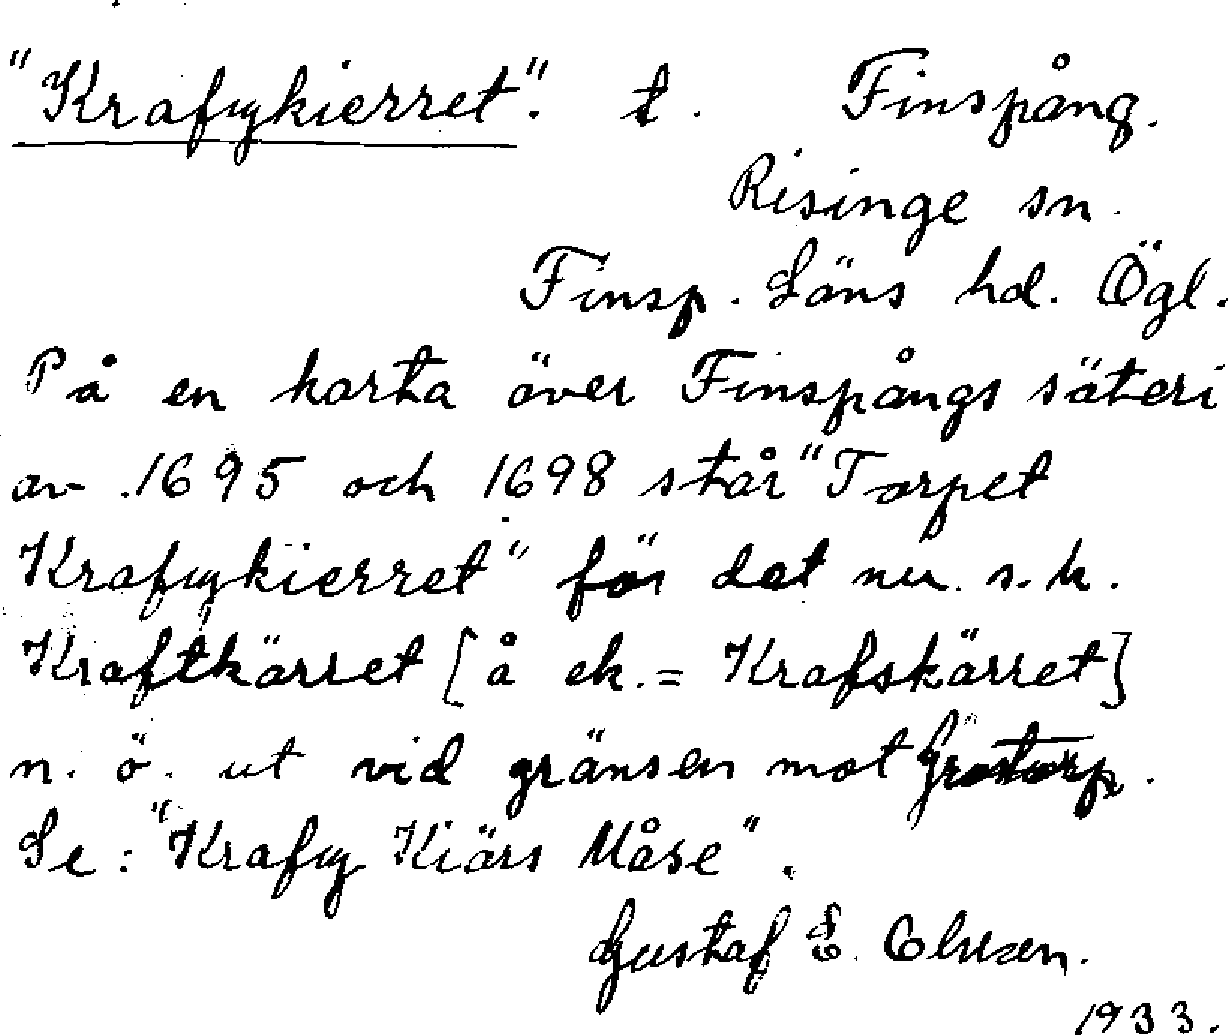 "Krafvykierret". t. Finspång.
Risinge sn.
Finsp. Läns hd. Ögl.
På en karta över Finspångs säteri
av 1695 och 1698 står "Torpet
Krafvykierret" för det nu s.k.
Kraftkärret [å ek. = Krafskärret]
n. ö. ut vid gränsen mot
Se: "Krafvy Kiärs Måse".
Gustaf E.
1933.